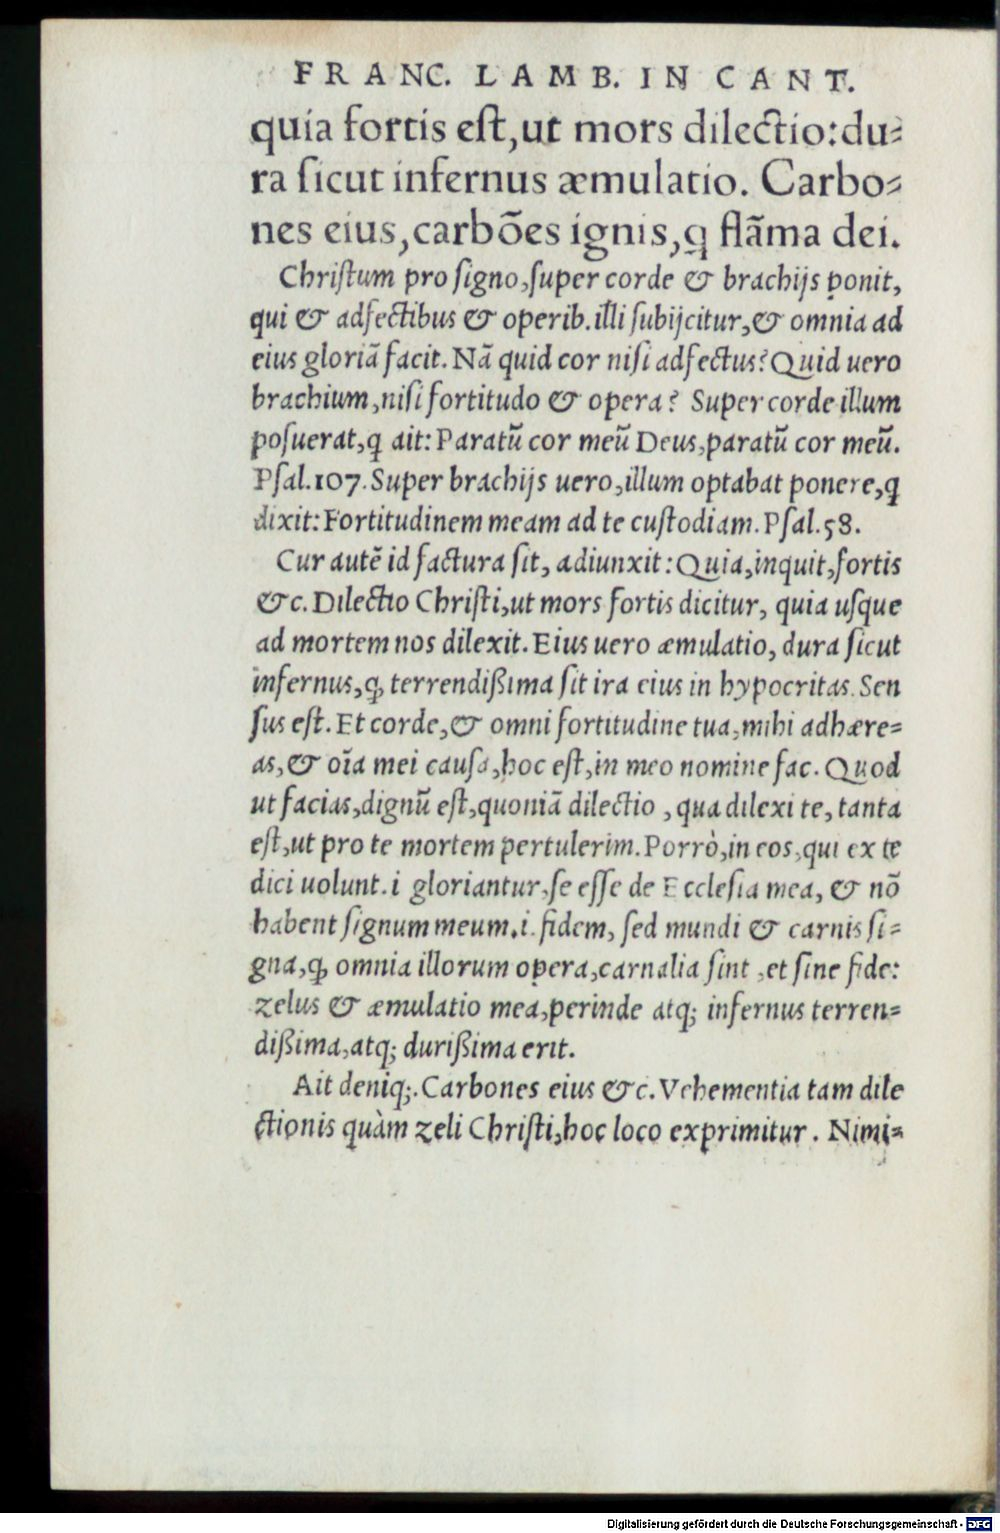 FRANC. LAMB. IN CANT.
quia fortis eſt,ut mors dilectio:du⸗
ra ſicut infernus æmulatio. Carbo⸗
nes eius,carbōes ignis,q̃ flāma dei.
Chriſtum pro ſigno,ſuper corde & brachijs ponit,
qui & adfectibus & operib. illi ſubijcitur,& omnia ad
eius gloriā facit. Nā quid cor niſi adfectus? Quid uero
brachium,niſi fortitudo & opera? Super corde illum
poſuerat,q̃ ait: Paratū cor meū Deus,paratū cor meū.
Pſal.107. Super brachijs uero,illum optabat ponere,q̃
dixit: Fortitudinem meam ad te cuſtodiam. Pſal.58.
Cur autē id factura ſit, adiunxit: Quia,inquit,fortis
&c. Dilectio Chriſti,ut mors fortis dicitur, quia uſque
ad mortem nos dilexit. Eius uero æmulatio, dura ſicut
infernus,ꝙ terrendißima ſit ira eius in hypocritas. Sen
ſus eſt. Et corde,& omni fortitudine tua,mihi adhære⸗
as,& oīa mei cauſa,hoc eſt,in meo nomine fac. Quod
ut facias,dignū eſt,quoniā dilectio , qua dilexi te, tanta
eſt,ut pro te mortem pertulerim. Porrò,in eos,qui ex te
dici uolunt. i gloriantur,ſe eſſe de Eccleſia mea, & nō
habent ſignum meum.i. fidem, ſed mundi & carnis ſi⸗
gna,ꝙ omnia illorum opera,carnalia ſint ,et ſine fide:
zelus & æmulatio mea,perinde atq; infernus terren⸗
dißima,atq; durißima erit.
Ait deniq;. Carbones eius &c. Vehementia tam dile
ctionis quàm zeli Chriſti,hoc loco exprimitur. Nimi⸗
Digitalisierung gefördert durch die Deutsche Forschungsgemeinschaft - DFG